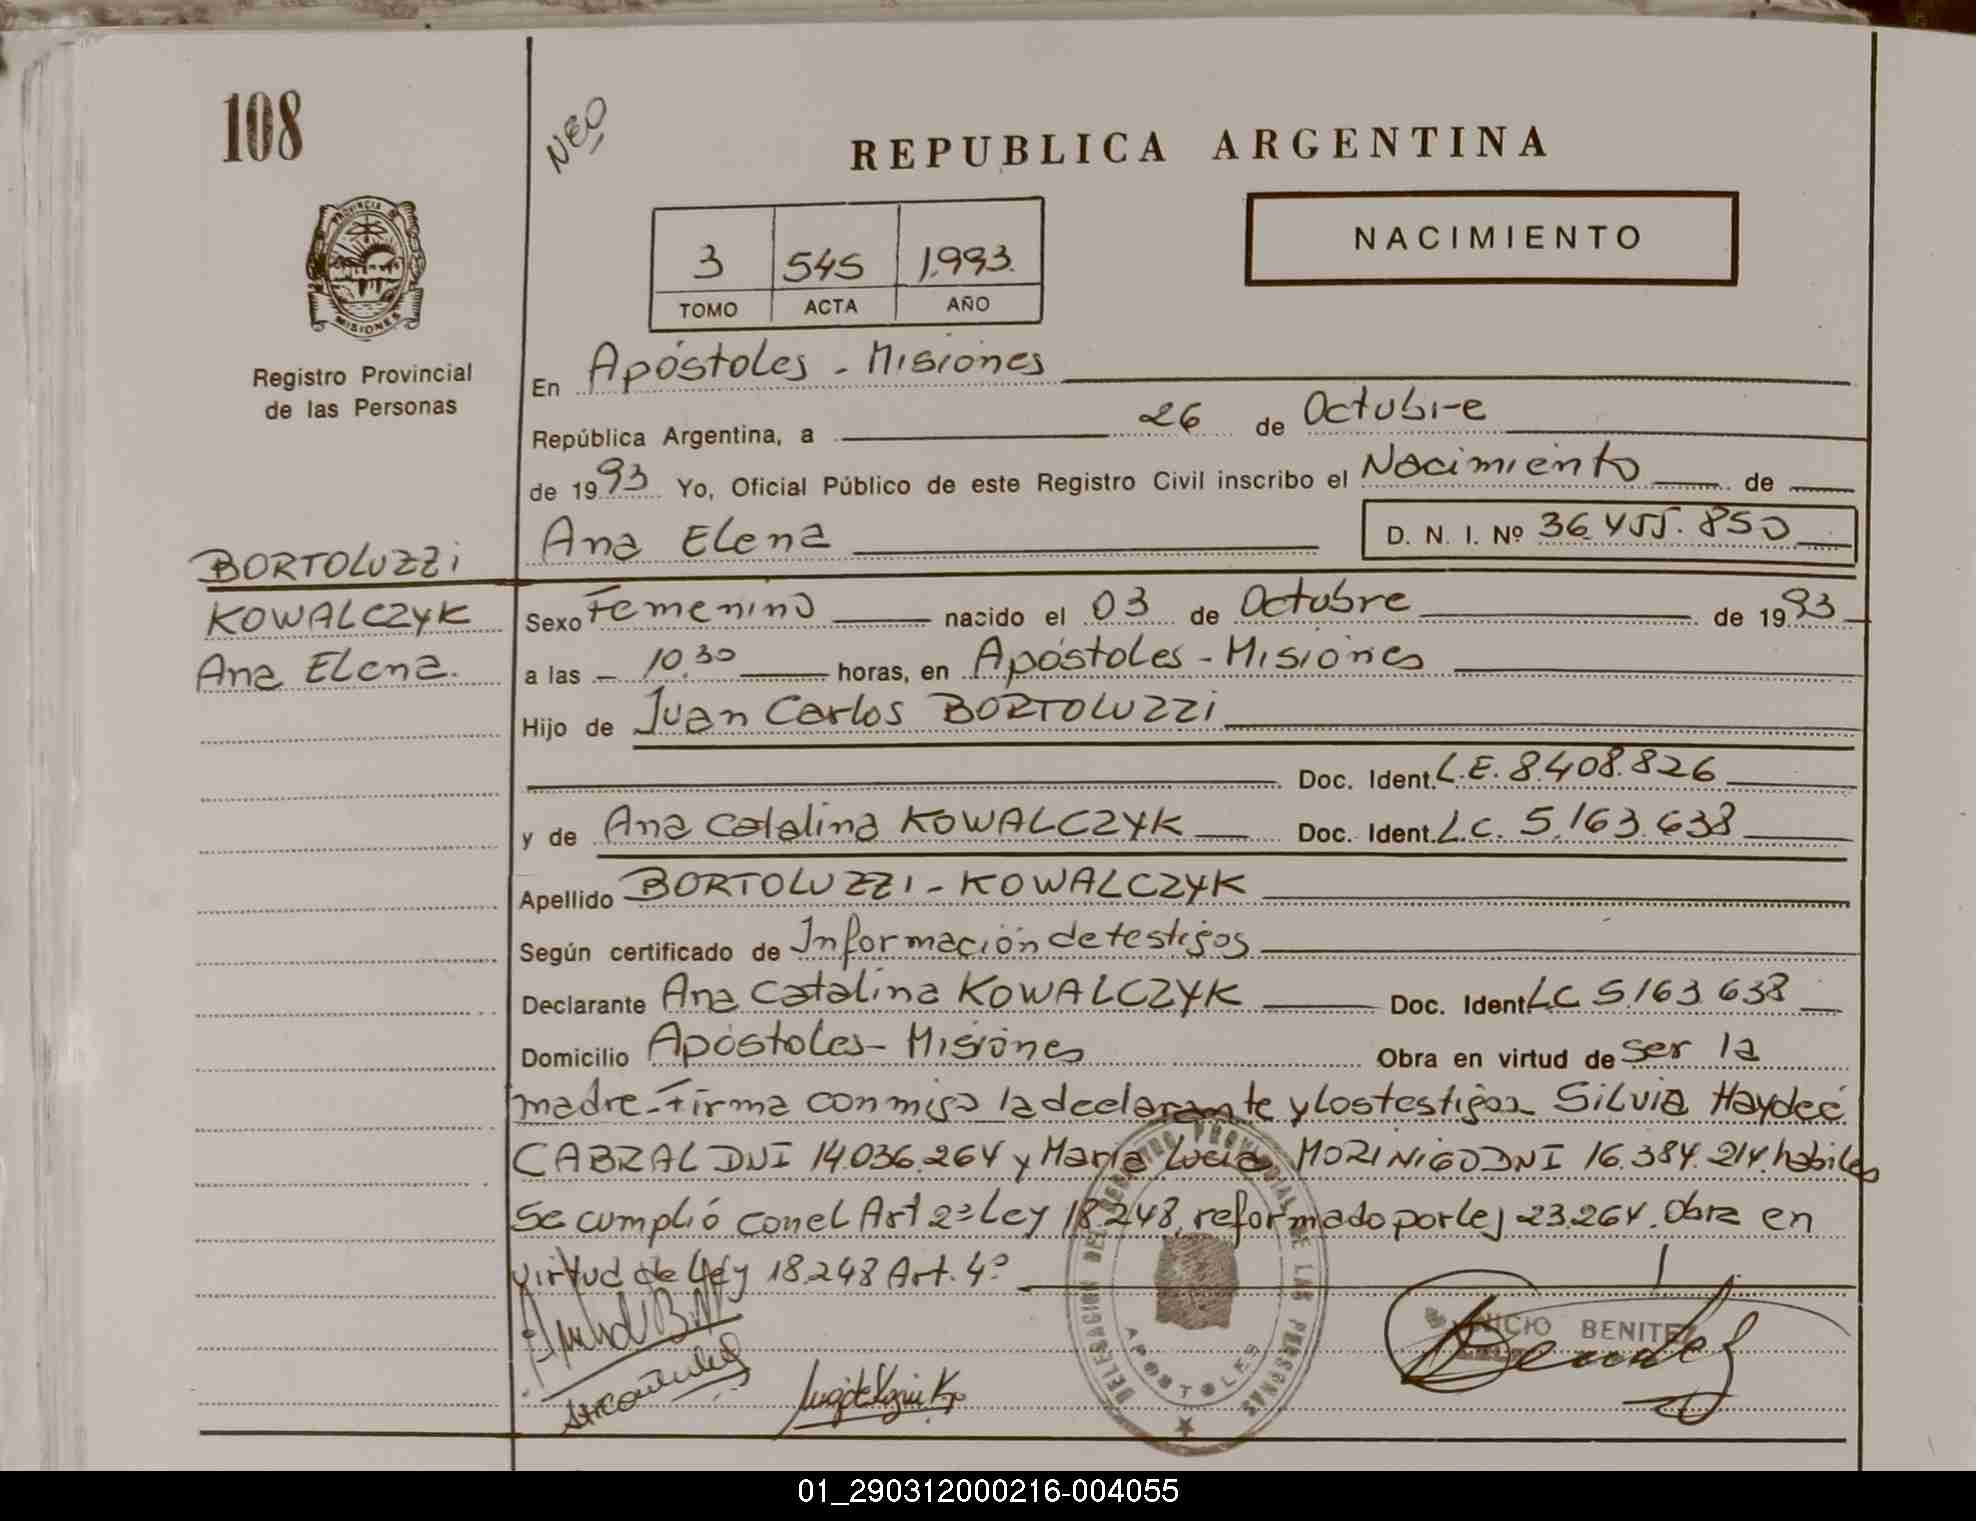 108
NEO
REPUBLICA ARGENTINA
PROVINCIA DE
MISIONES
Registro Provincial
de las Personas
3 545 1.993.
TOMO ACTA AÑO
NACIMIENTO
En Apóstoles - Misiones
República Argentina, a 26 de Octubre
de 1993 Yo, Oficial Público de este Registro Civil inscribo el Nacimiento de
Ana Elena D. N. I. Nº 36.455.850
BORTOLUZZI
KOWALCZYK
Ana Elena.
Sexo Femenino nacido el 03 de Octubre de 1993
a las 10.30 horas, en Apóstoles - Misiones
Hijo de Juan Carlos BORTOLUZZI
Doc. Ident. L.E. 8.408.826
y de Ana Catalina KOWALCZYK Doc. Ident. L.C. 5.163.638
Apellido BORTOLUZZI - KOWALCZYK
Según certificado de Información de testigos
Declarante Ana Catalina KOWALCZYK Doc. Ident. LC 5.163.638
Domicilio Apóstoles - Misiones Obra en virtud de ser la
madre - Firma conmigo la declarante y los testigos Silvia Haydeé
CABRAL DNI 14.036.264 y María Lucia MORINIGO DNI 16.384.214. habiles
Se cumplió con el Art 2º Ley 18.248, reformado por ley 23.264. Obra en
virtud de Ley 18.248 Art. 4º
DELEGACION DEL REGISTRO PROVINCIAL DE LAS PERSONAS
APOSTOLES
BENITEZ
01_290312000216-004055